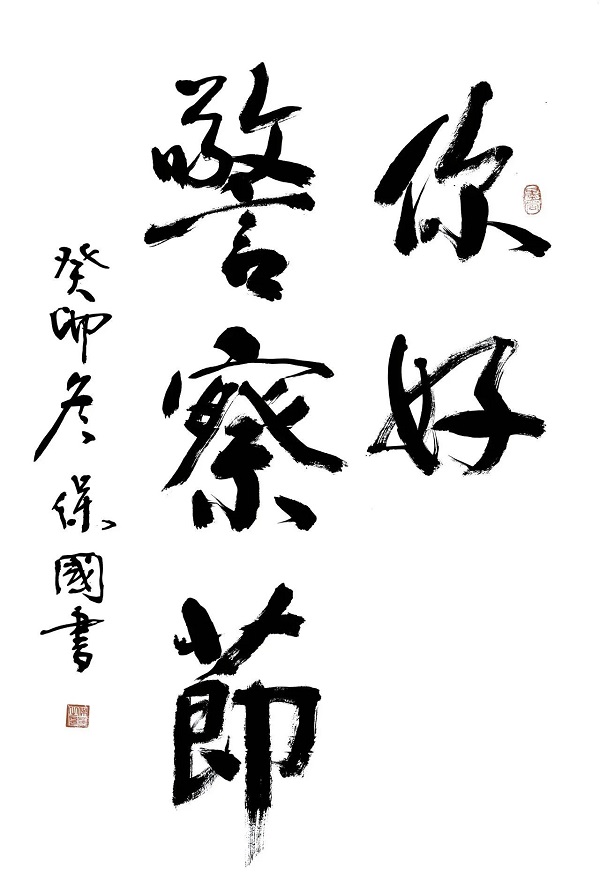 你好
警察節
癸卯冬保國書